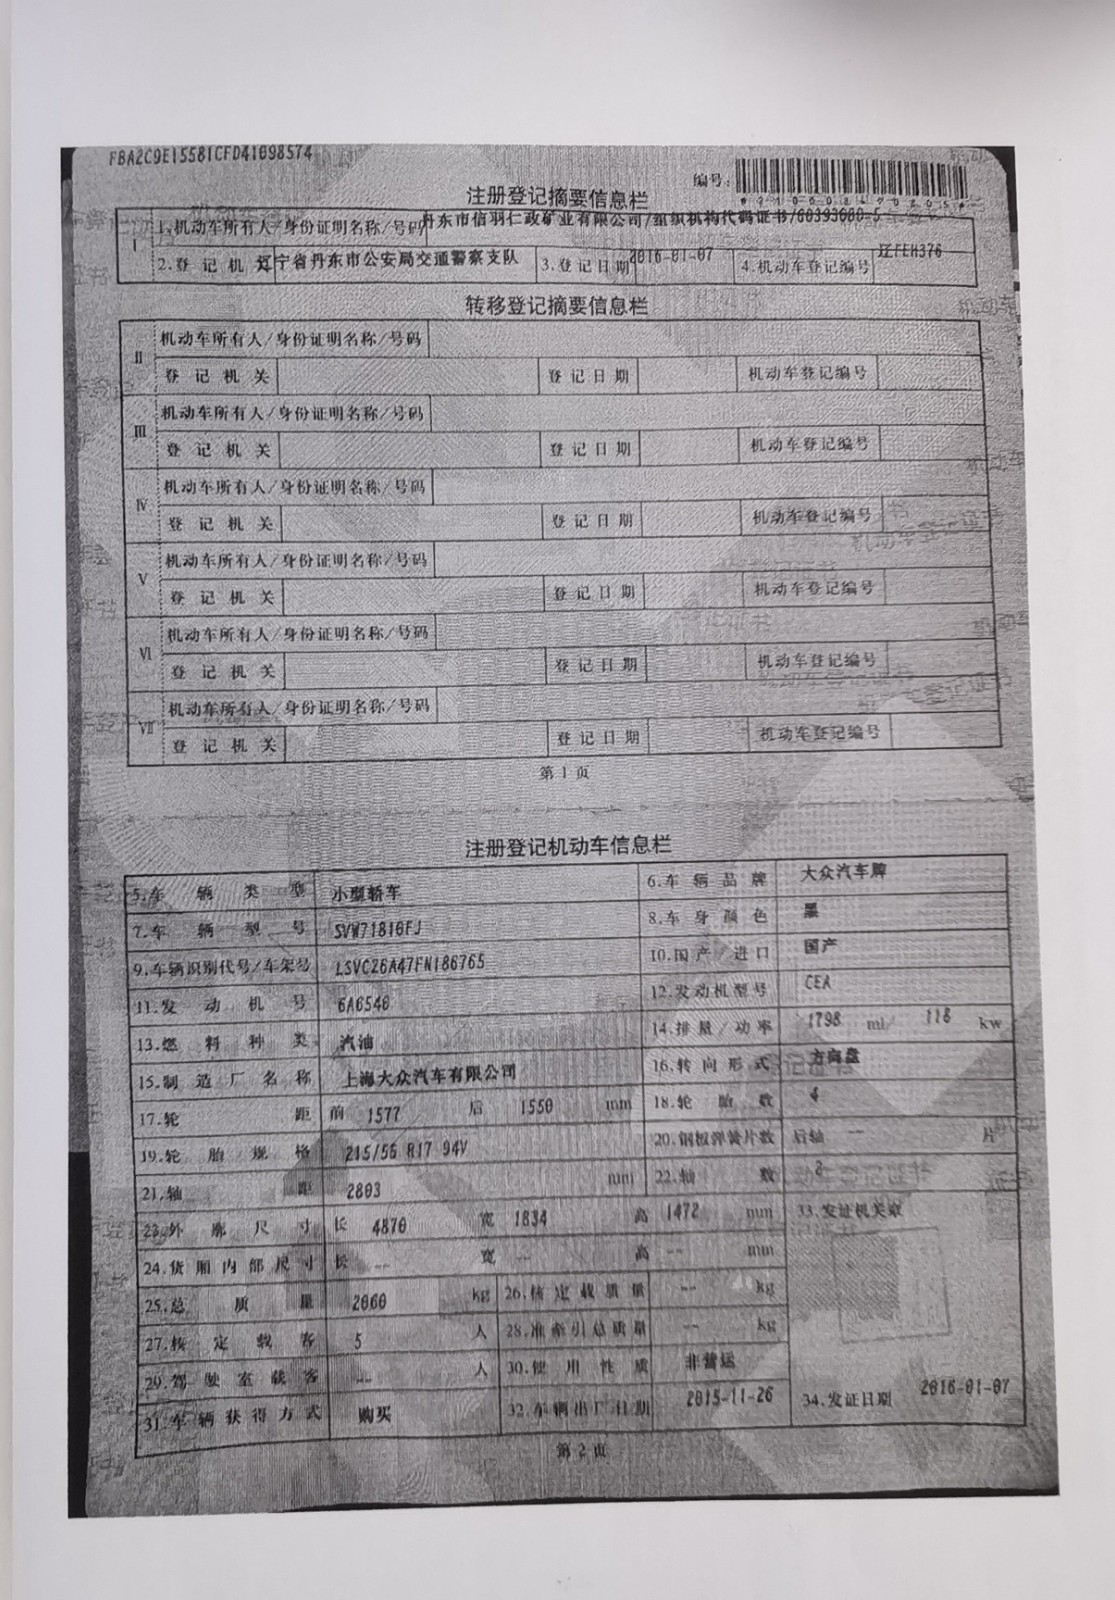 FBA2C9E15581CFD41098574
编号:
注册登记摘要信息栏
I 1.机动车所有人/身份证明名称/号码 丹东市信羽仁政矿业有限公司/组织机构代码证书/60393680-5
2.登记机关 辽宁省丹东市公安局交通警察支队 3.登记日期 2016-01-07 4.机动车登记编号 辽FEH376
转移登记摘要信息栏
II 机动车所有人/身份证明名称/号码
登记机关 登记日期 机动车登记编号
III 机动车所有人/身份证明名称/号码
登记机关 登记日期 机动车登记编号
IV 机动车所有人/身份证明名称/号码
登记机关 登记日期 机动车登记编号
V 机动车所有人/身份证明名称/号码
登记机关 登记日期 机动车登记编号
VI 机动车所有人/身份证明名称/号码
登记机关 登记日期 机动车登记编号
VII 机动车所有人/身份证明名称/号码
登记机关 登记日期 机动车登记编号
第1页
注册登记机动车信息栏
5.车辆类型 小型轿车 6.车辆品牌 大众汽车牌
7.车辆型号 SVW71810FJ 8.车身颜色 黑
9.车辆识别代号/车架号 LSVC26A47FN186765 10.国产/进口 国产
11.发动机号 6A6540 12.发动机型号 CEA
13.燃料种类 汽油 14.排量/功率 1798 ml/ 118 kw
15.制造厂名称 上海大众汽车有限公司 16.转向形式 方向盘
17.轮距 前 1577 后 1550 mm 18.轮胎数 4
19.轮胎规格 215/55 R17 94V 20.钢板弹簧片数 后轴 -- 片
21.轴距 2803 mm 22.轴数 2
23.外廓尺寸 长 4870 宽 1834 高 1472 mm 33.发证机关章
24.货厢内部尺寸 长 -- 宽 -- 高 -- mm
25.总质量 2060 kg 26.核定载质量 -- kg
27.核定载客 5 人 28.准牵引总质量 -- kg
29.驾驶室载客 -- 人 30.使用性质 非营运
31.车辆获得方式 购买 32.车辆出厂日期 2015-11-26 34.发证日期 2016-01-07
第2页